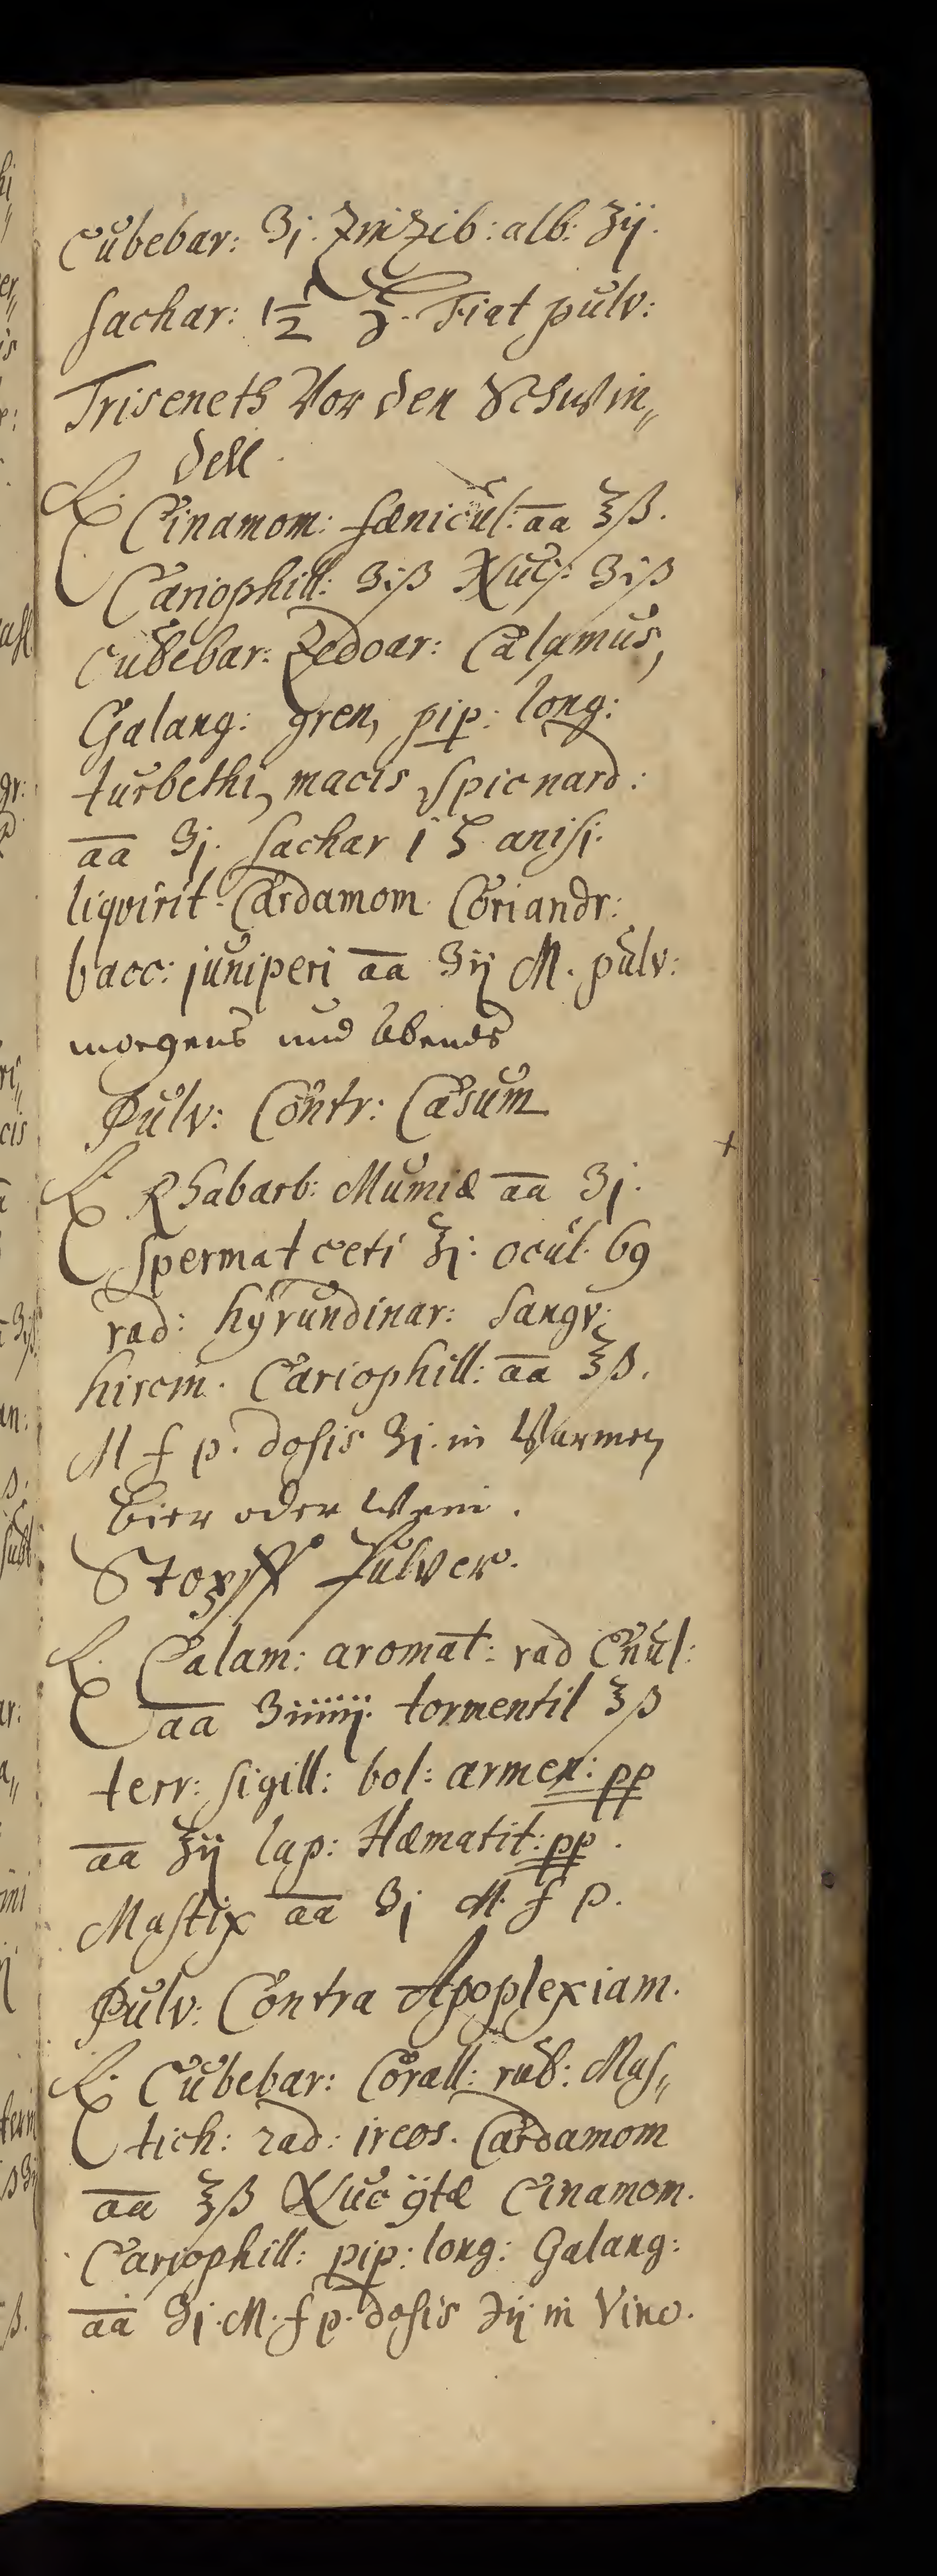 Cubebar: ʒj. Zinzib: alb: ʒij.
sachar: 1½ ℥. Fiat pulv:
Triseneth Vor den Schwin„
dell.
℞. Cinamom: fænicul: aa ℥ß.
Cariophill: ʒiß Nuc: ʒiß
Cubebar: Zedoar: Calamus,
Galang: gren, pip: long:
turbethi, macis, Spicnard:
aa ʒj. Sachar i ℔ anisi.
liqvirit. Cardamom. Coriandr:
bacc: juniperi aa ʒij M. pulv:
morgens und Abends
Pulv: Contr: Casum
℞ Rhabarb: Mumiæ aa ʒj.
Spermat ceti ℥j: ocul. 69
rad: hÿrundinar: Sangv:
hircin. Cariophill: aa ℥ß.
M f p. dosis ʒj. in Warmen
Bier oder Wein.
Stopff Pulver.
℞. Calam: aromat: rad Enul:
aa ʒiiiiij. tormentil ℥ß
terr: sigill: bol: armen: pp
aa ʒij lap: Hæmatit: pp.
Mastix aa ʒj M. f p.
Pulv. Contra Apoplexiam.
℞. Cubebar: Corall: rub: Mas„
tich: rad: ireos. Cardamom
aa ℥ß Nuc ÿtæ Cinamom.
Cariophill: pip: long: Galang:
aa ʒj. M. f p. dosis ʒij in Vino.